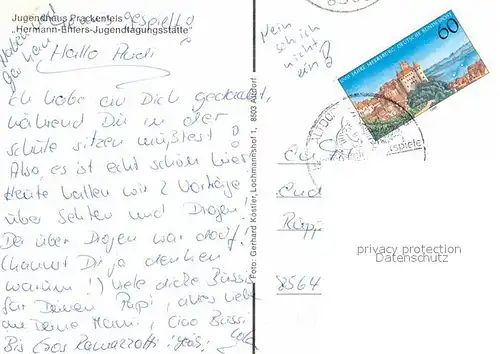 Jugendhaus Prackenfels
„Hermann-Ehlers-Jugendtagungsstätte"
gespielt!
Hallo Rudi
Ich habe an Dich gedacht,
während Du in der
Schule sitzen mußtest!
Also, es ist echt schön hier.
Heute hatten wir 2 Vorträge
über Sekten und Drogen!
Der über Drogen war doof!
(kannst Dir ja denken
warum!) Viele dicke Bussis
für Deinen Papi, alles liebe
an Deine Mami, Ciao Bussi
Bis Eros Ramazzotti!
Foto: Gerhard Köstler, Lochmannshof 1, 8503 Altdorf
Nein
seh ich
nicht
ein!
1000 JAHRE MEERSBURG DEUTSCHE BUNDESPOST
60
ALTDORF
8564
privacy protection
Datenschutz